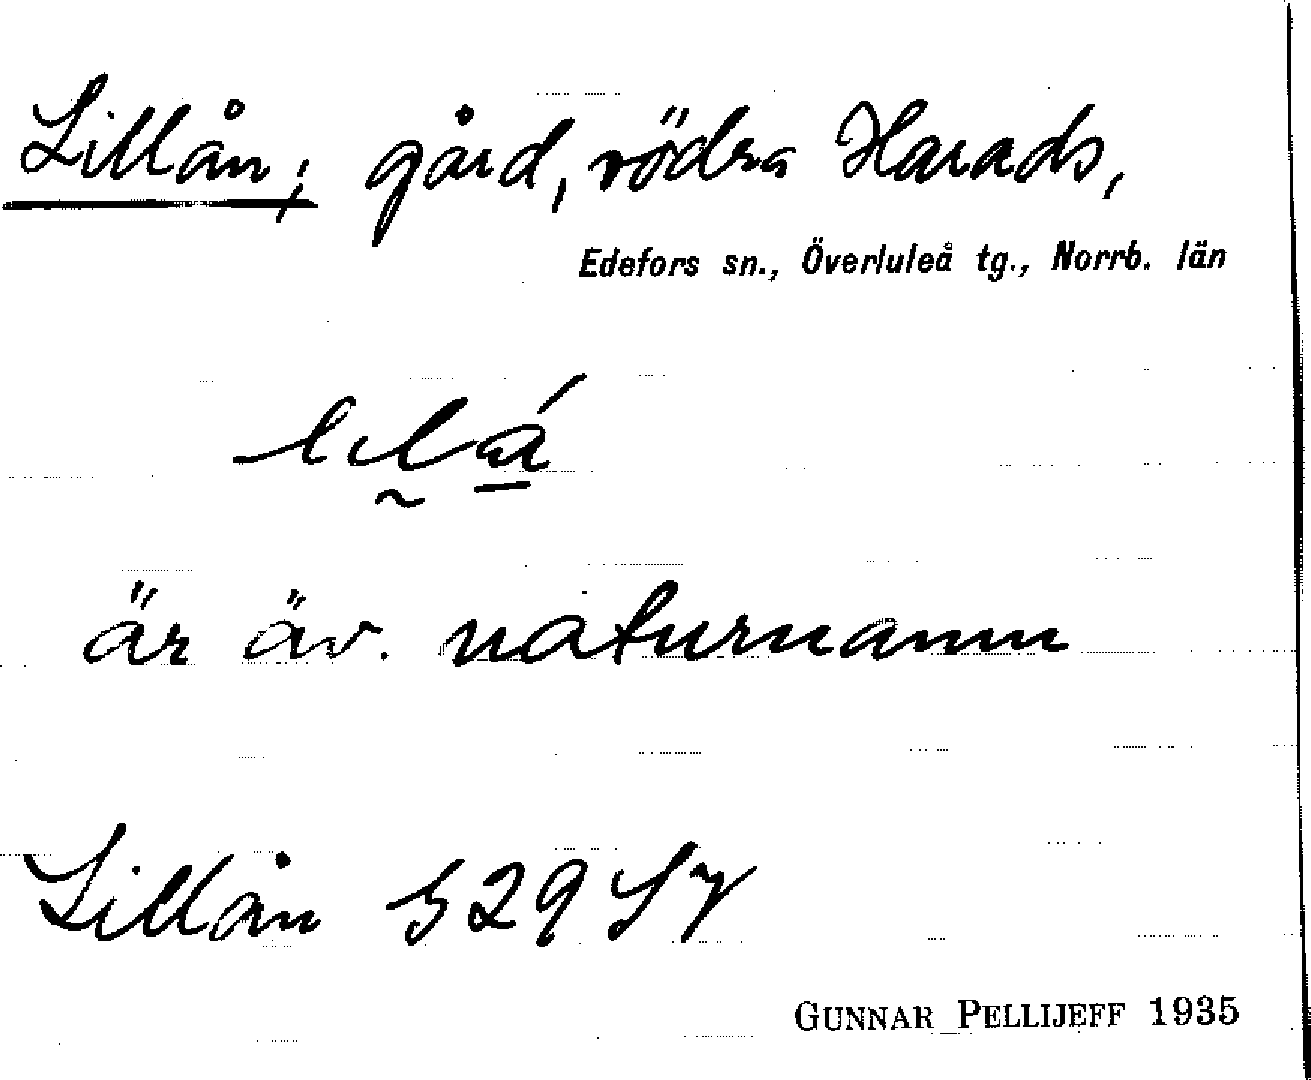 Lillån; gård, södra Harads,
Edefors sn., Överluleå tg., Norrb. län
är äv. naturnamn
Lillån
GUNNAR PELLIJEFF 1935